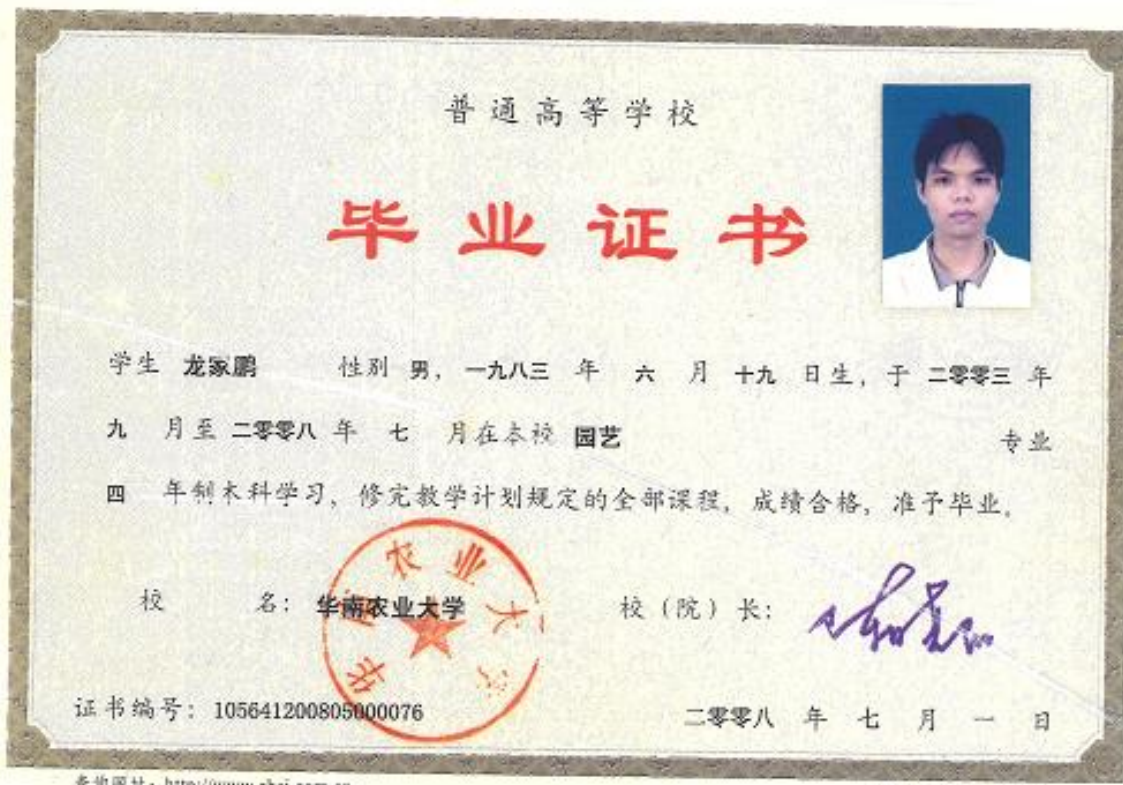 普通高等学校
毕业证书
学生 龙家鹏 性别 男，一九八三 年 六 月 十九 日生，于 二零零三 年
九 月至 二零零八 年 七 月在本校 园艺 专业
四 年制本科学习，修完教学计划规定的全部课程，成绩合格，准予毕业。
校 名：华南农业大学 校（院）长：
华南农业大学
证书编号：105641200805000076 二零零八 年 七 月 一 日